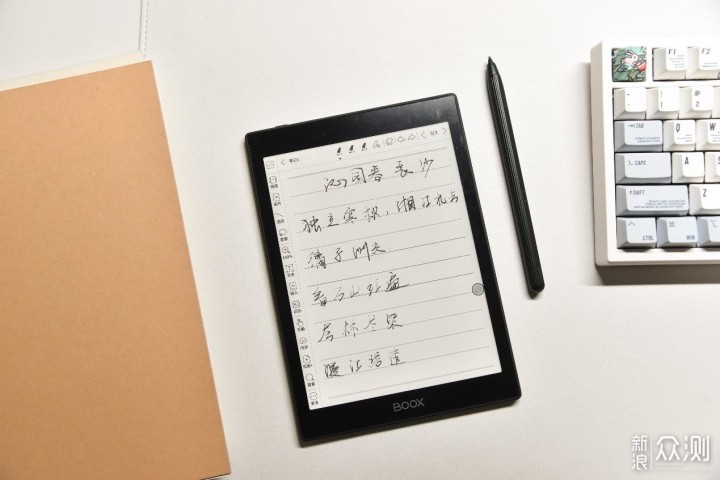 沁园春 长沙
独立寒秋，湘江北去
橘子洲头
看万山红遍
层林尽染
漫江碧透
BOOX
F1
F2
TAB
Q
W
CAPS
A
S
SHIFT
Z
CTRL
WIN
新浪众测